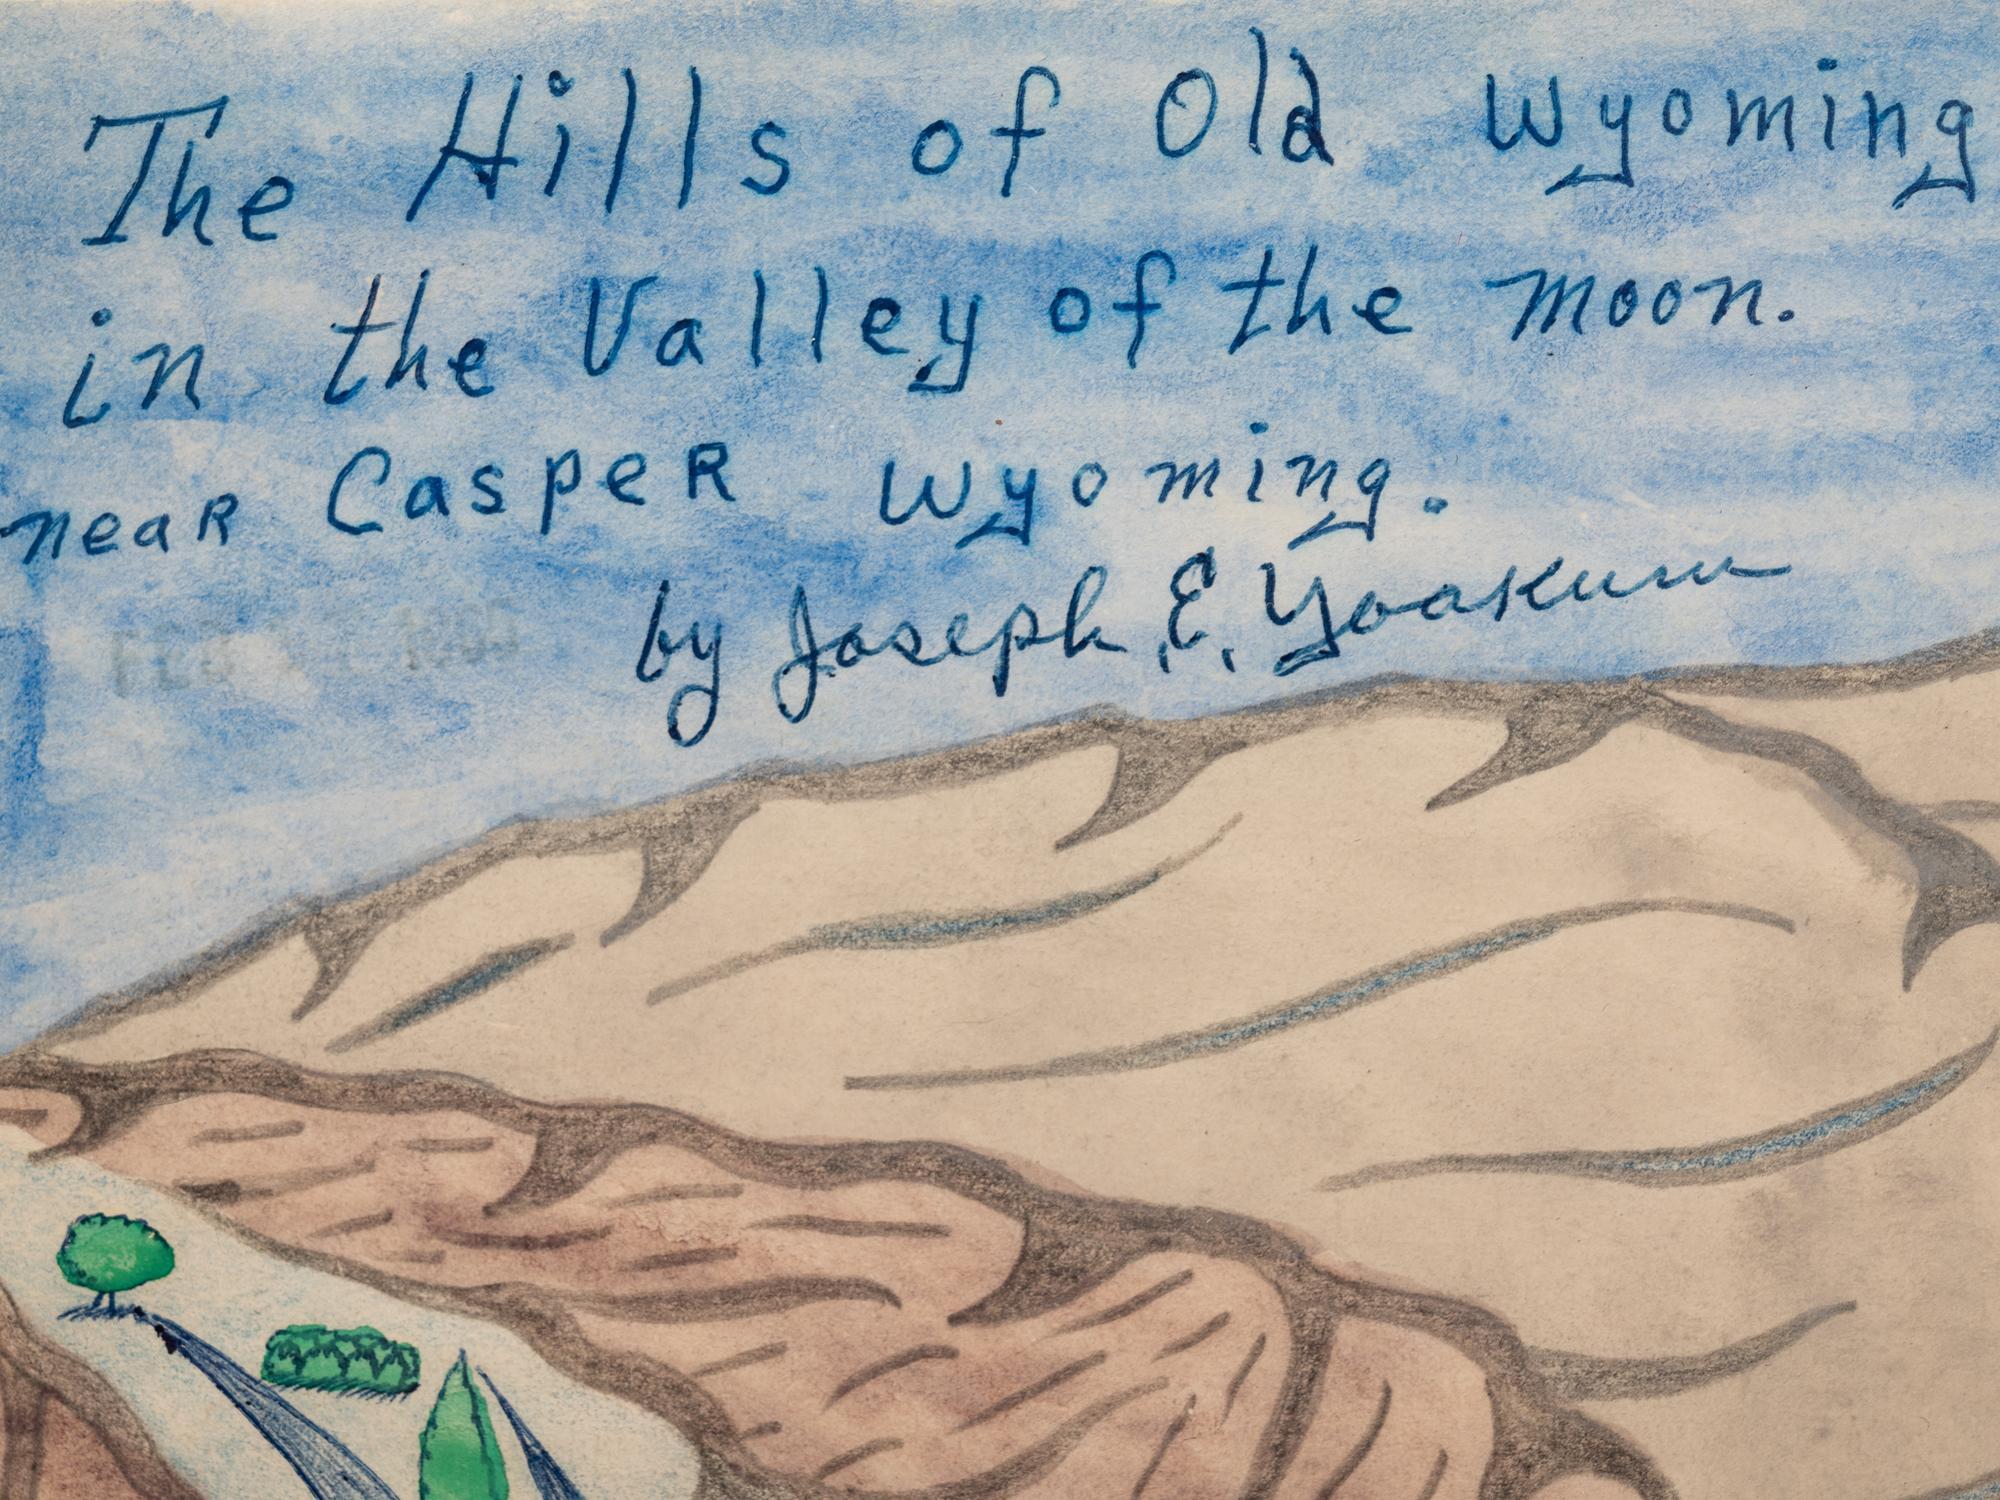 The Hills of Old Wyoming
in the Valley of the moon.
near Casper Wyoming.
by Joseph E. Yoakum
FEB